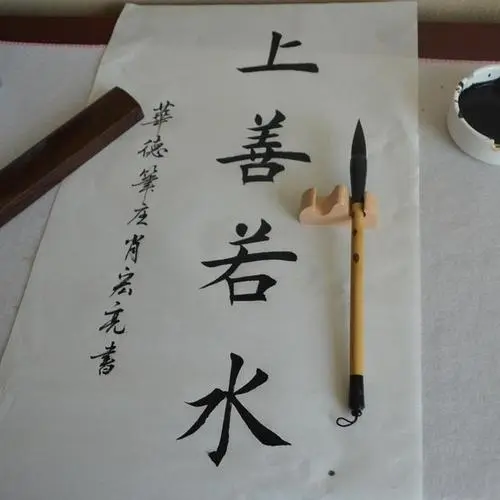 上善若水
華德筆庄肖宏亮書